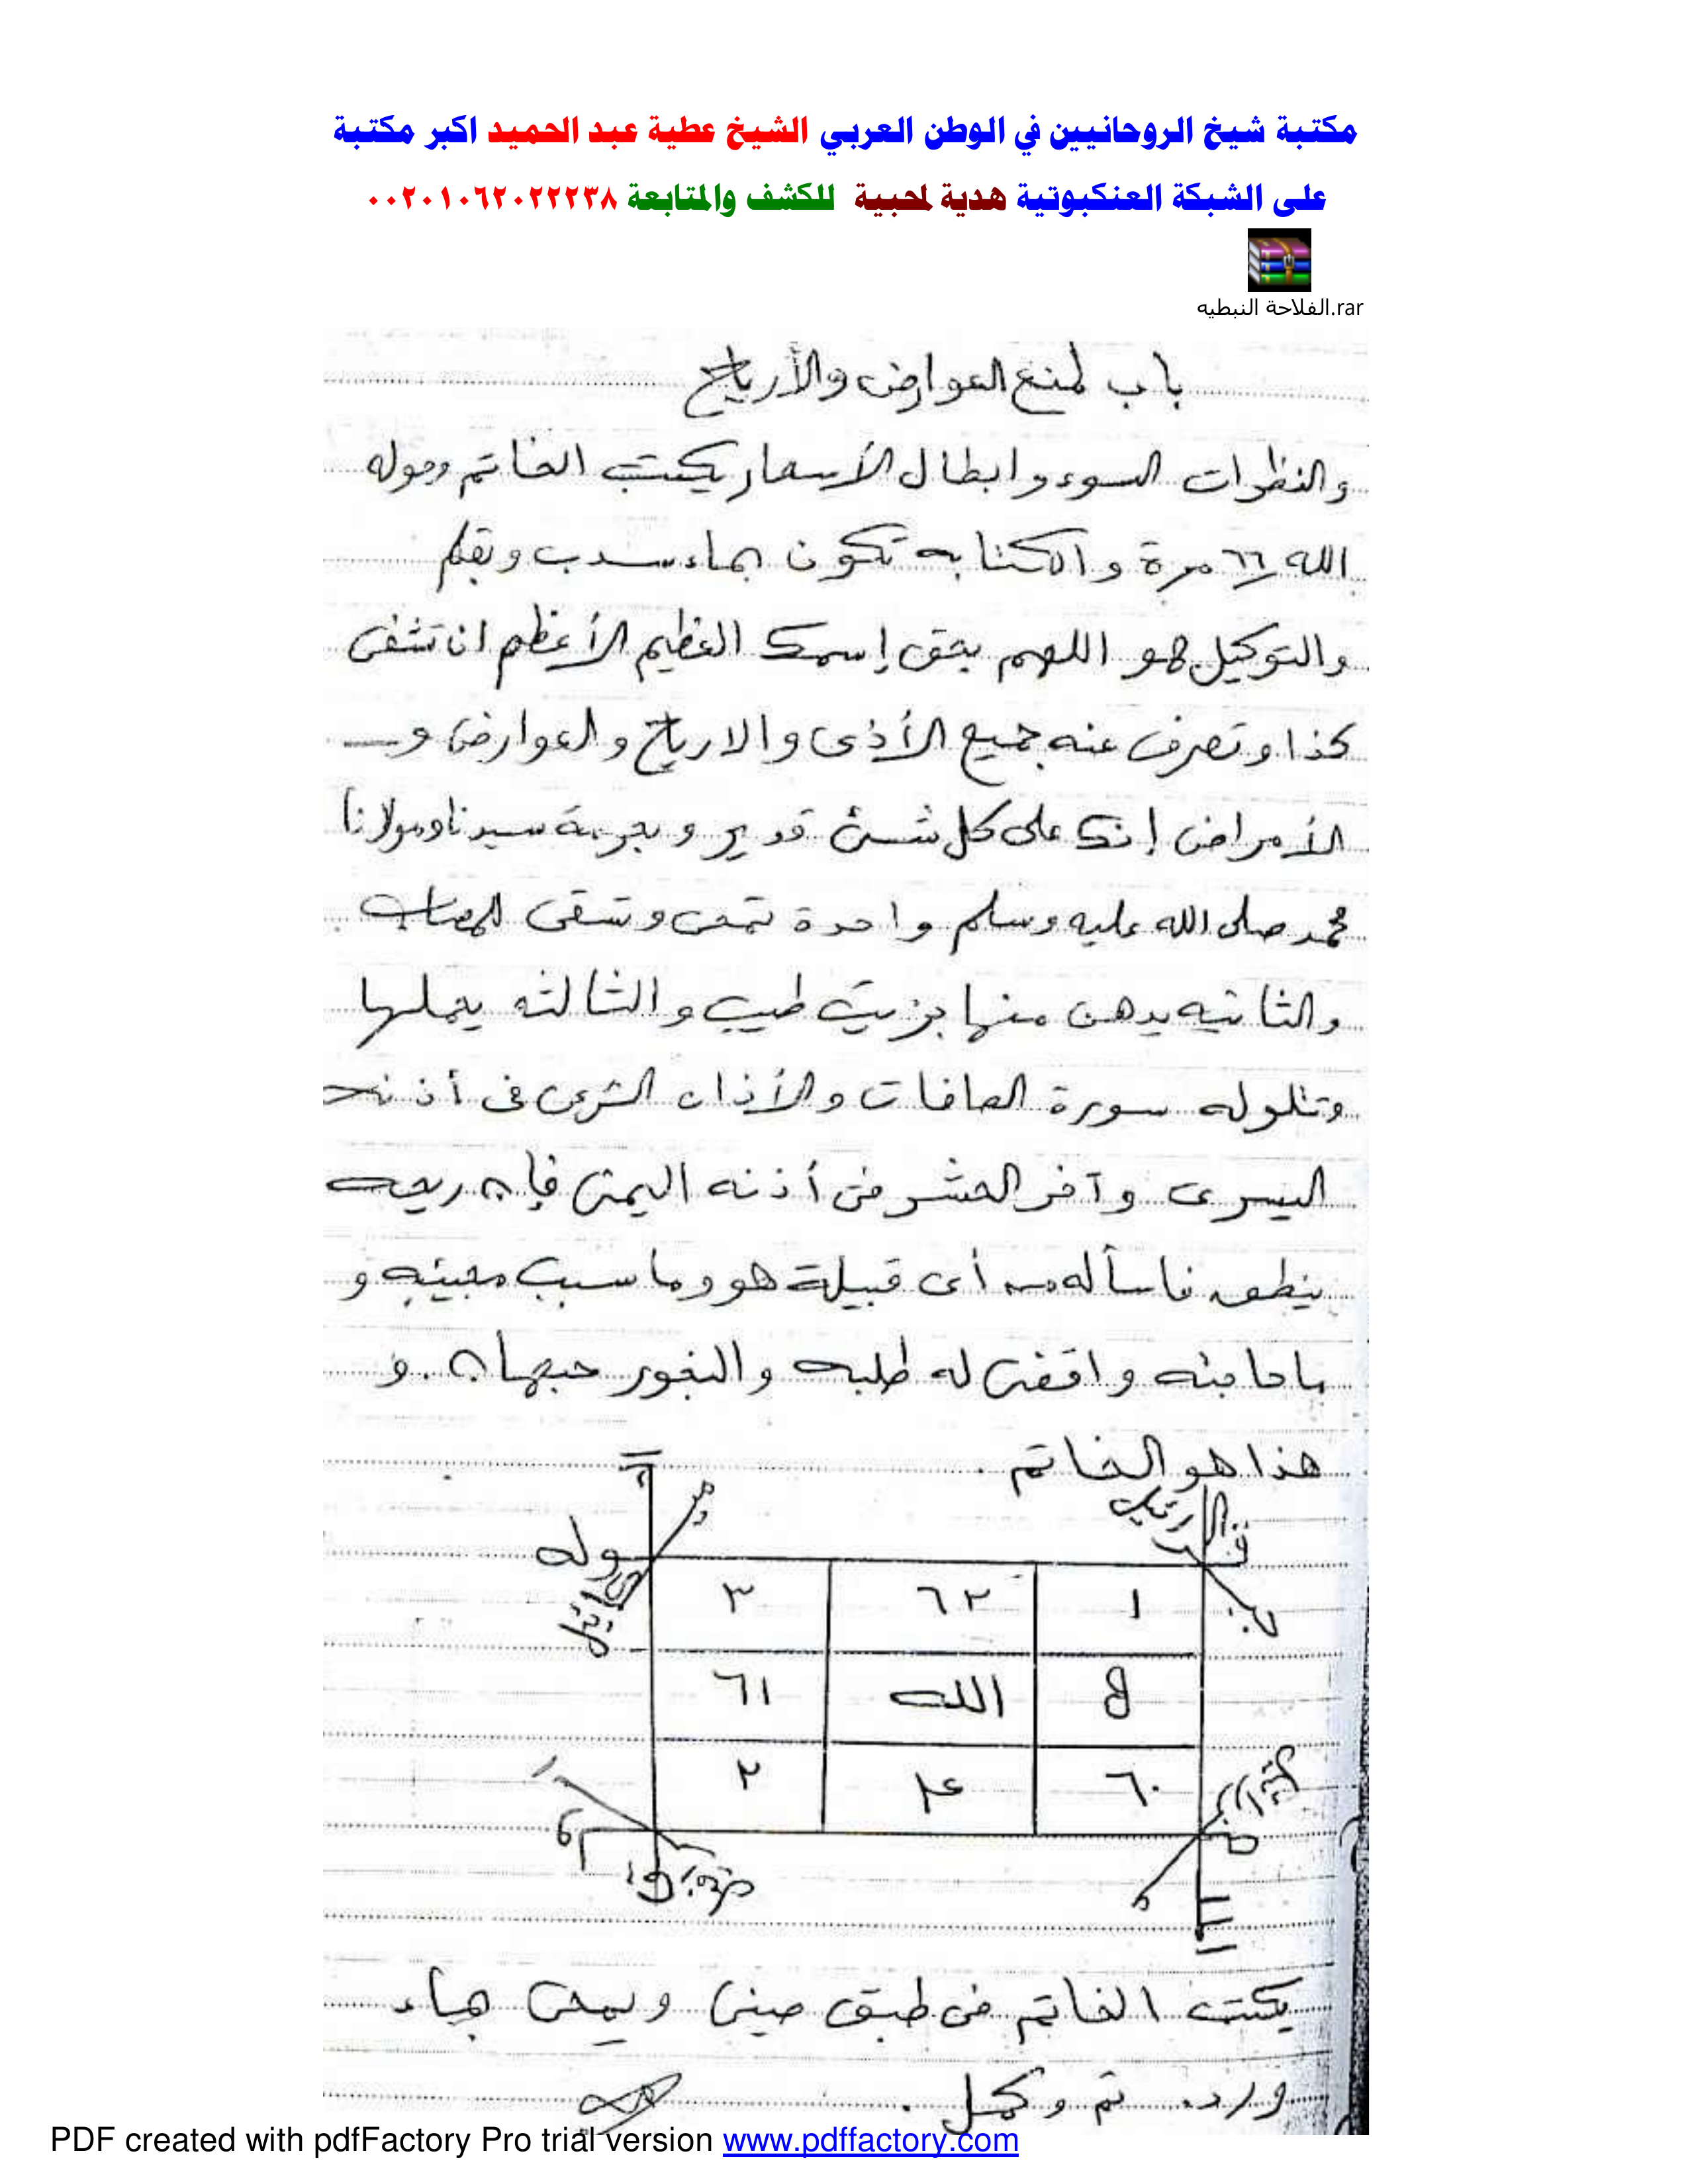 مكتبة شيخ الروحانيين في الوطن العربي الشيخ عطية عبد الحميد اكبر مكتبة
على الشبكة العنكبوتية هدية لمحبية للكشف والمتابعة ٠٠٢٠١٠٦٢٠٢٢٢٣٨
الفلاحة النبطيه.rar
باب لمنع العوارض والأرياح
والنظرات السوء وابطال الأسحار يكتب الخاتم وحوله
الله ٦٦ مرة والكتابه تكون بماء سدب وبقلم
والتوكيل هو اللهم بحق إسمك العظيم الأعظم ان تشفى
كذا وتصرف عنه جميع الأذى والارياح والعوارض و
الأمراض إنك على كل شئ قدير وبحرمة سيدنا ومولانا
محمد صلى الله عليه وسلم واحدة تمحى وتسقى للمصاب
والثانيه يدهن منها بزيت طيب والثالثه يحملها
وتتلو له سورة الصافات والأذان الشرعى فى أذنه
اليسرى وآخر الحشر فى أذنه اليمنى فإن ريحه
ينطق فاسأله من أى قبيلة هو وما سبب مجيئه و
ما حاجته واقضى له طلبه والبخور حبهان و
هذا هو الخاتم .
١ ٦٢ ٣
الله ٦١
٦٠ ٤ ٢
يكتب الخاتم فى طبق صينى ويمحى بماء
ورد. تم وكمل .
PDF created with pdfFactory Pro trial version www.pdffactory.com